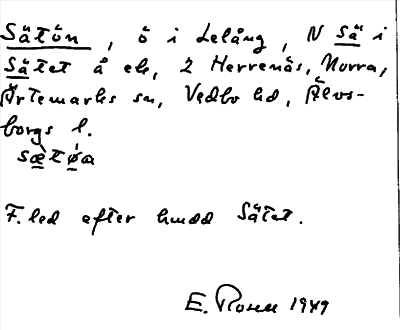 Sätön, ö i Lelång, N Sä i
Sätet å ek, 2 Herrenäs, Norra,
Ärtemarks sn, Vedbo hd, Älvs-
borgs l.
sætøa
F.led after hmdd Sätet.
E. Rosen 1949